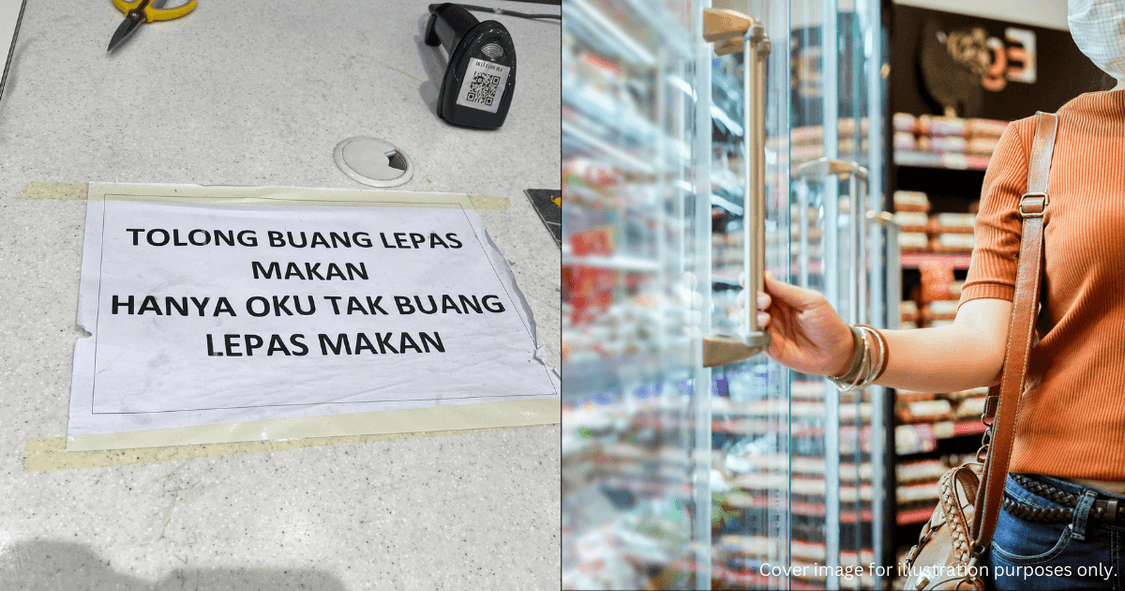 TOLONG BUANG LEPAS
MAKAN
HANYA OKU TAK BUANG
LEPAS MAKAN
Cover image for illustration purposes only.